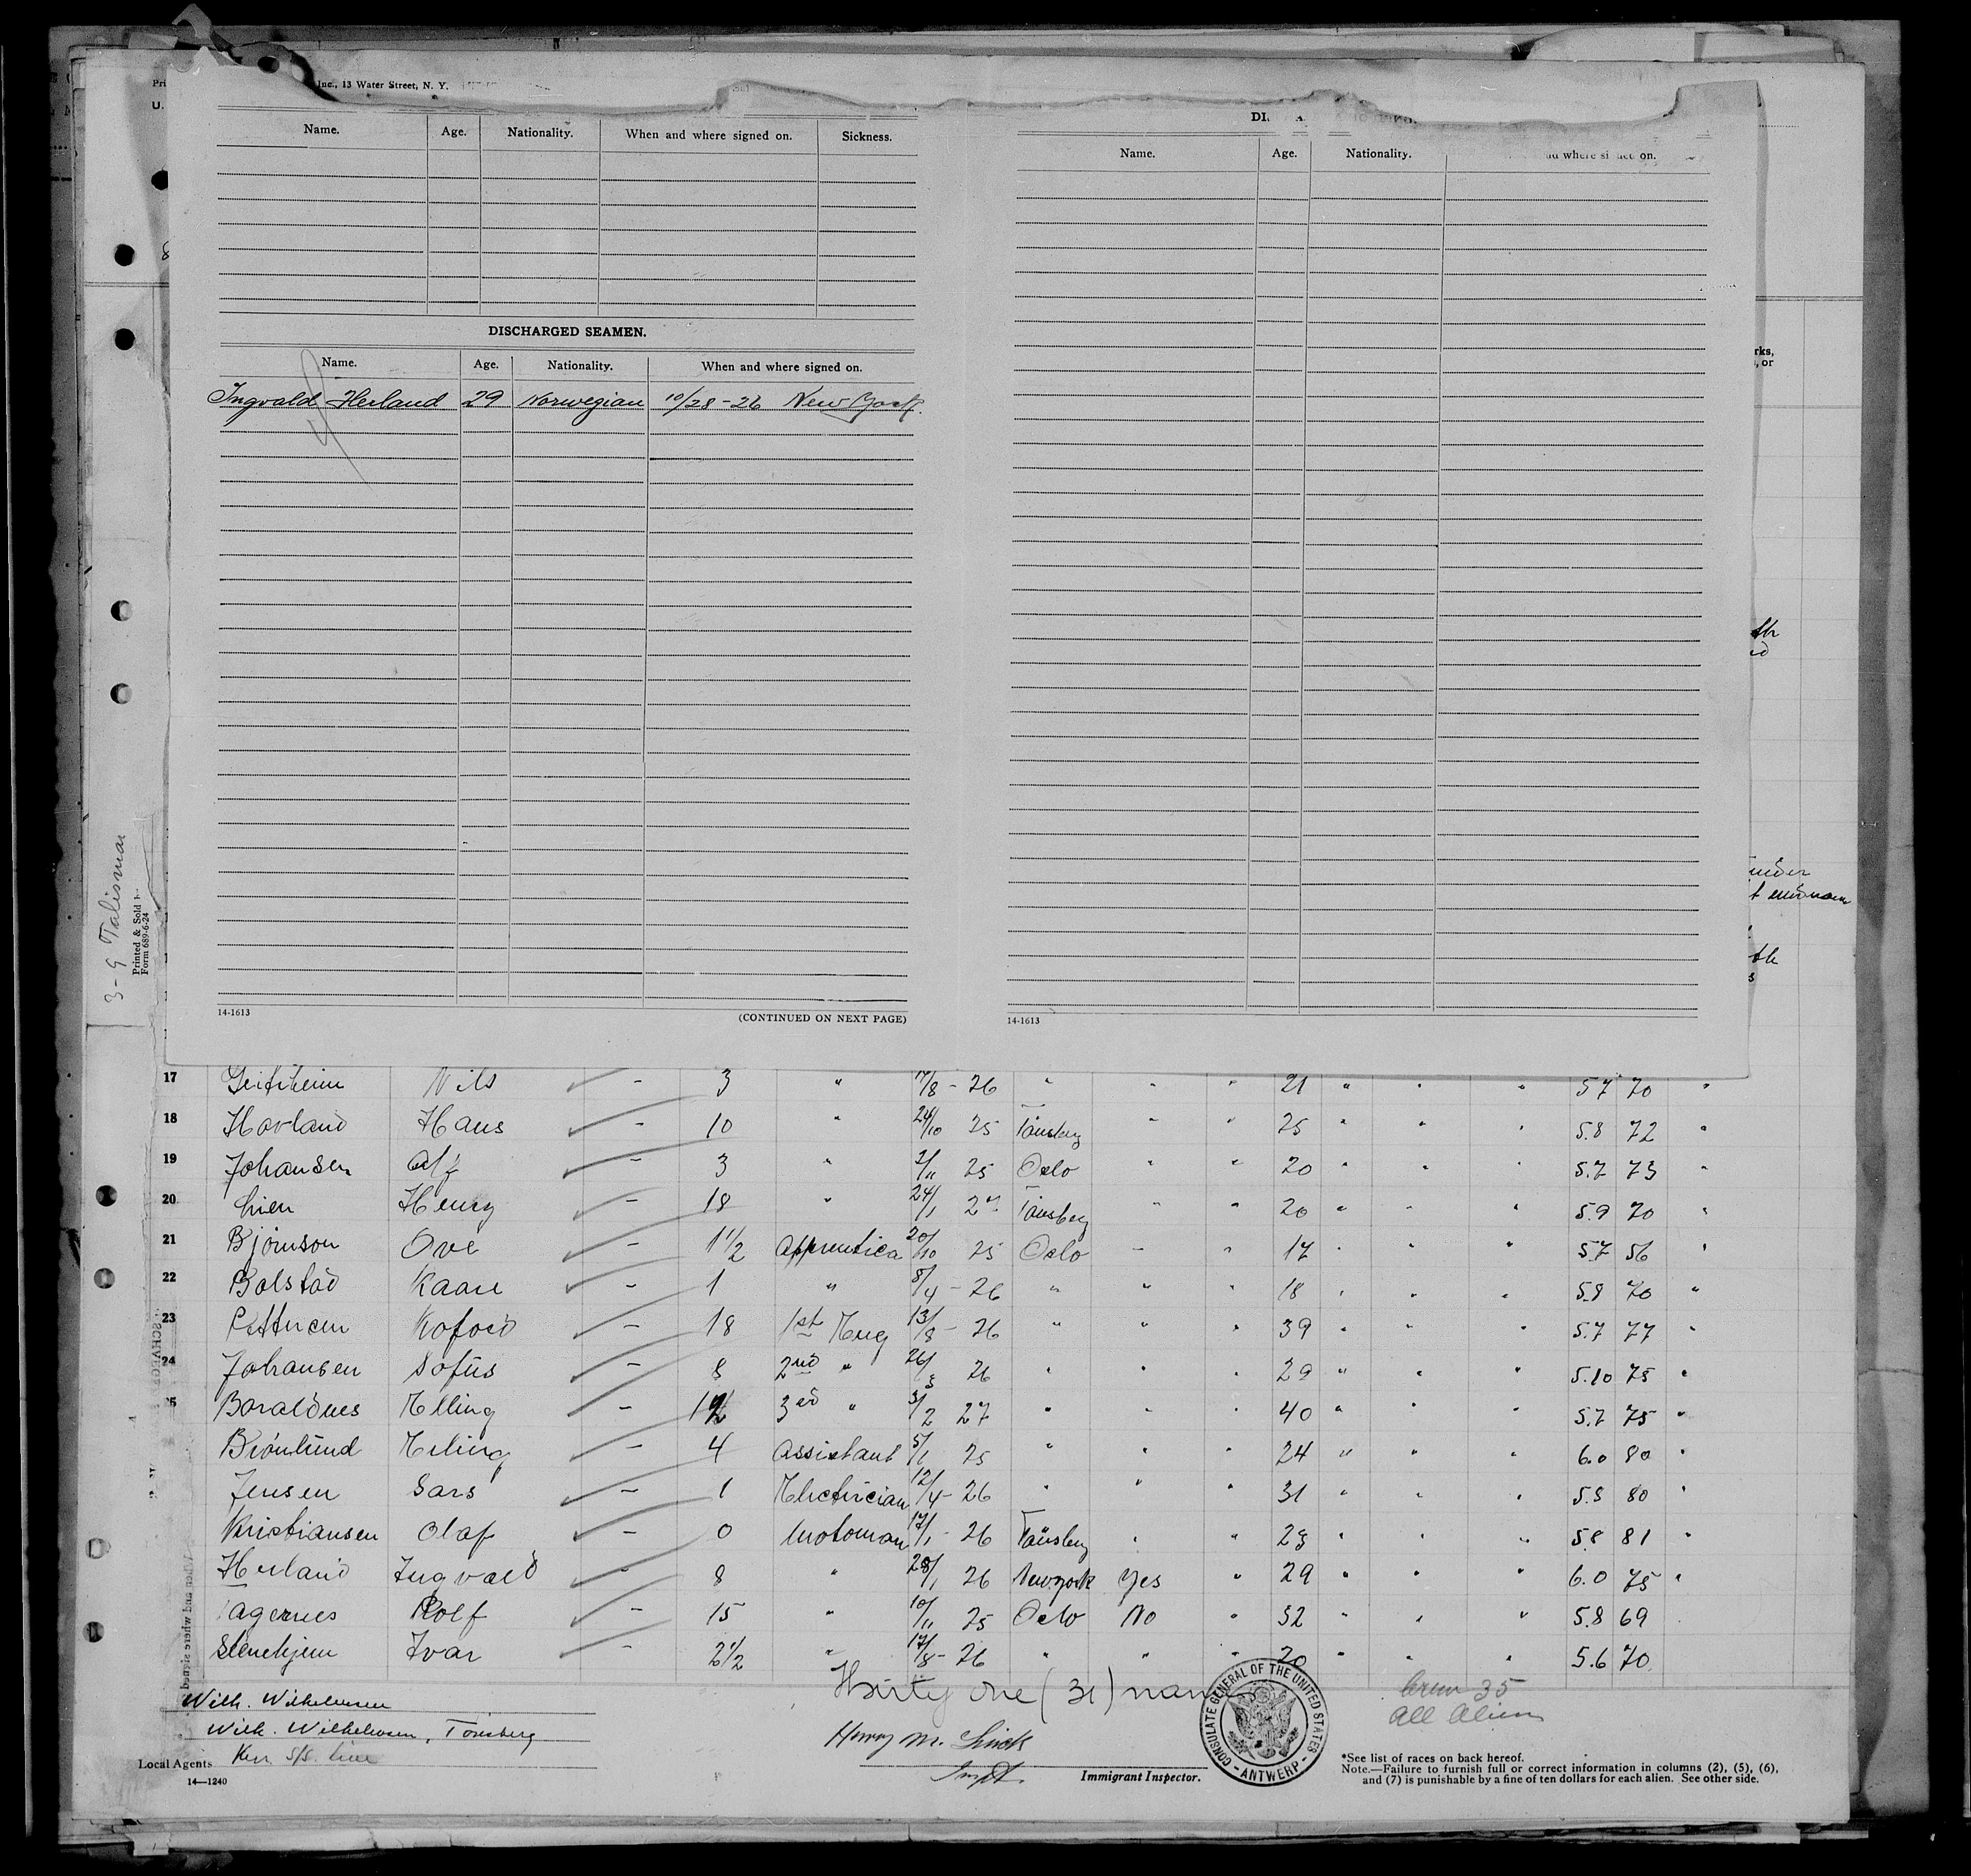 Inc., 13 Water Street, N. Y.
U.
Name. Age. Nationality. When and where signed on. Sickness.
DISCHARGED SEAMEN.
Name. Age. Nationality. When and where signed on.
Ingvald Herland 29 Norwegian 10/28-26 New York.
14-1613
(CONTINUED ON NEXT PAGE)
Name. Age. Nationality. on.
14-1613
3-9 Talisman
Printed & Sold
Form 689-6-24
17 Nils - 3 " 17/8-26 " " " 21 " " " 5 7 70 "
18 Hovland Hans - 10 " 24/10 25 Tönsberg " " 25 " " " 5.8 72 "
19 Johansen Alf - 3 " 2/11 25 Oslo " " 20 " " " 5.7 73 "
20 Lien Henry - 18 " 24/1 27 Tönsberg " " 20 " " " 5.9 70 "
21 Björnson Ove - 1 1/2 Apprentice 20/10 25 Oslo - " 17 " " " 5.7 56 "
22 Bolstad Kaare - 1 " 8/4-26 " " " 18 " " " 5.8 70 "
23 Pettersen Kofoed - 18 1st Eng 13/8-26 " " " 39 " " " 5.7 77 "
24 Johansen Sofus - 8 2nd " 26 " " " 29 " " " 5.10 75 "
25 Elling - 3rd " 3/2 27 " " " 40 " " " 5.7 75 "
Erling - 4 Assistant 5/1 25 " " " 24 " " " 6.0 80 "
Jensen Lars - 1 Electrician 12/4-26 " " " 31 " " " 80 "
Kristiansen Olaf - 0 Motoman 17/1-26 Tönsberg " " " " " 5.8 81 "
Herland Ingvald " 8 " 28/1 26 New york Yes " 29 " " " 6.0 75 "
Rolf - 15 " 10/11 25 Oslo No " 32 " " " 5.8 69
Stenehjem Ivar - 2 1/2 " 17/8-26 " " " 20 " " " 5.6 70
Thirty one (31) names
Wilh. Wilhelmsen
Wilh. Wilhelmsen, Tönsberg
Local Agents Kerr S/S. Line
14—1240
Immigrant Inspector.
CONSULATE GENERAL OF THE UNITED STATES - ANTWERP -
Crew 35
All Aliens
*See list of races on back hereof.
Note.—Failure to furnish full or correct information in columns (2), (5), (6),
and (7) is punishable by a fine of ten dollars for each alien. See other side.